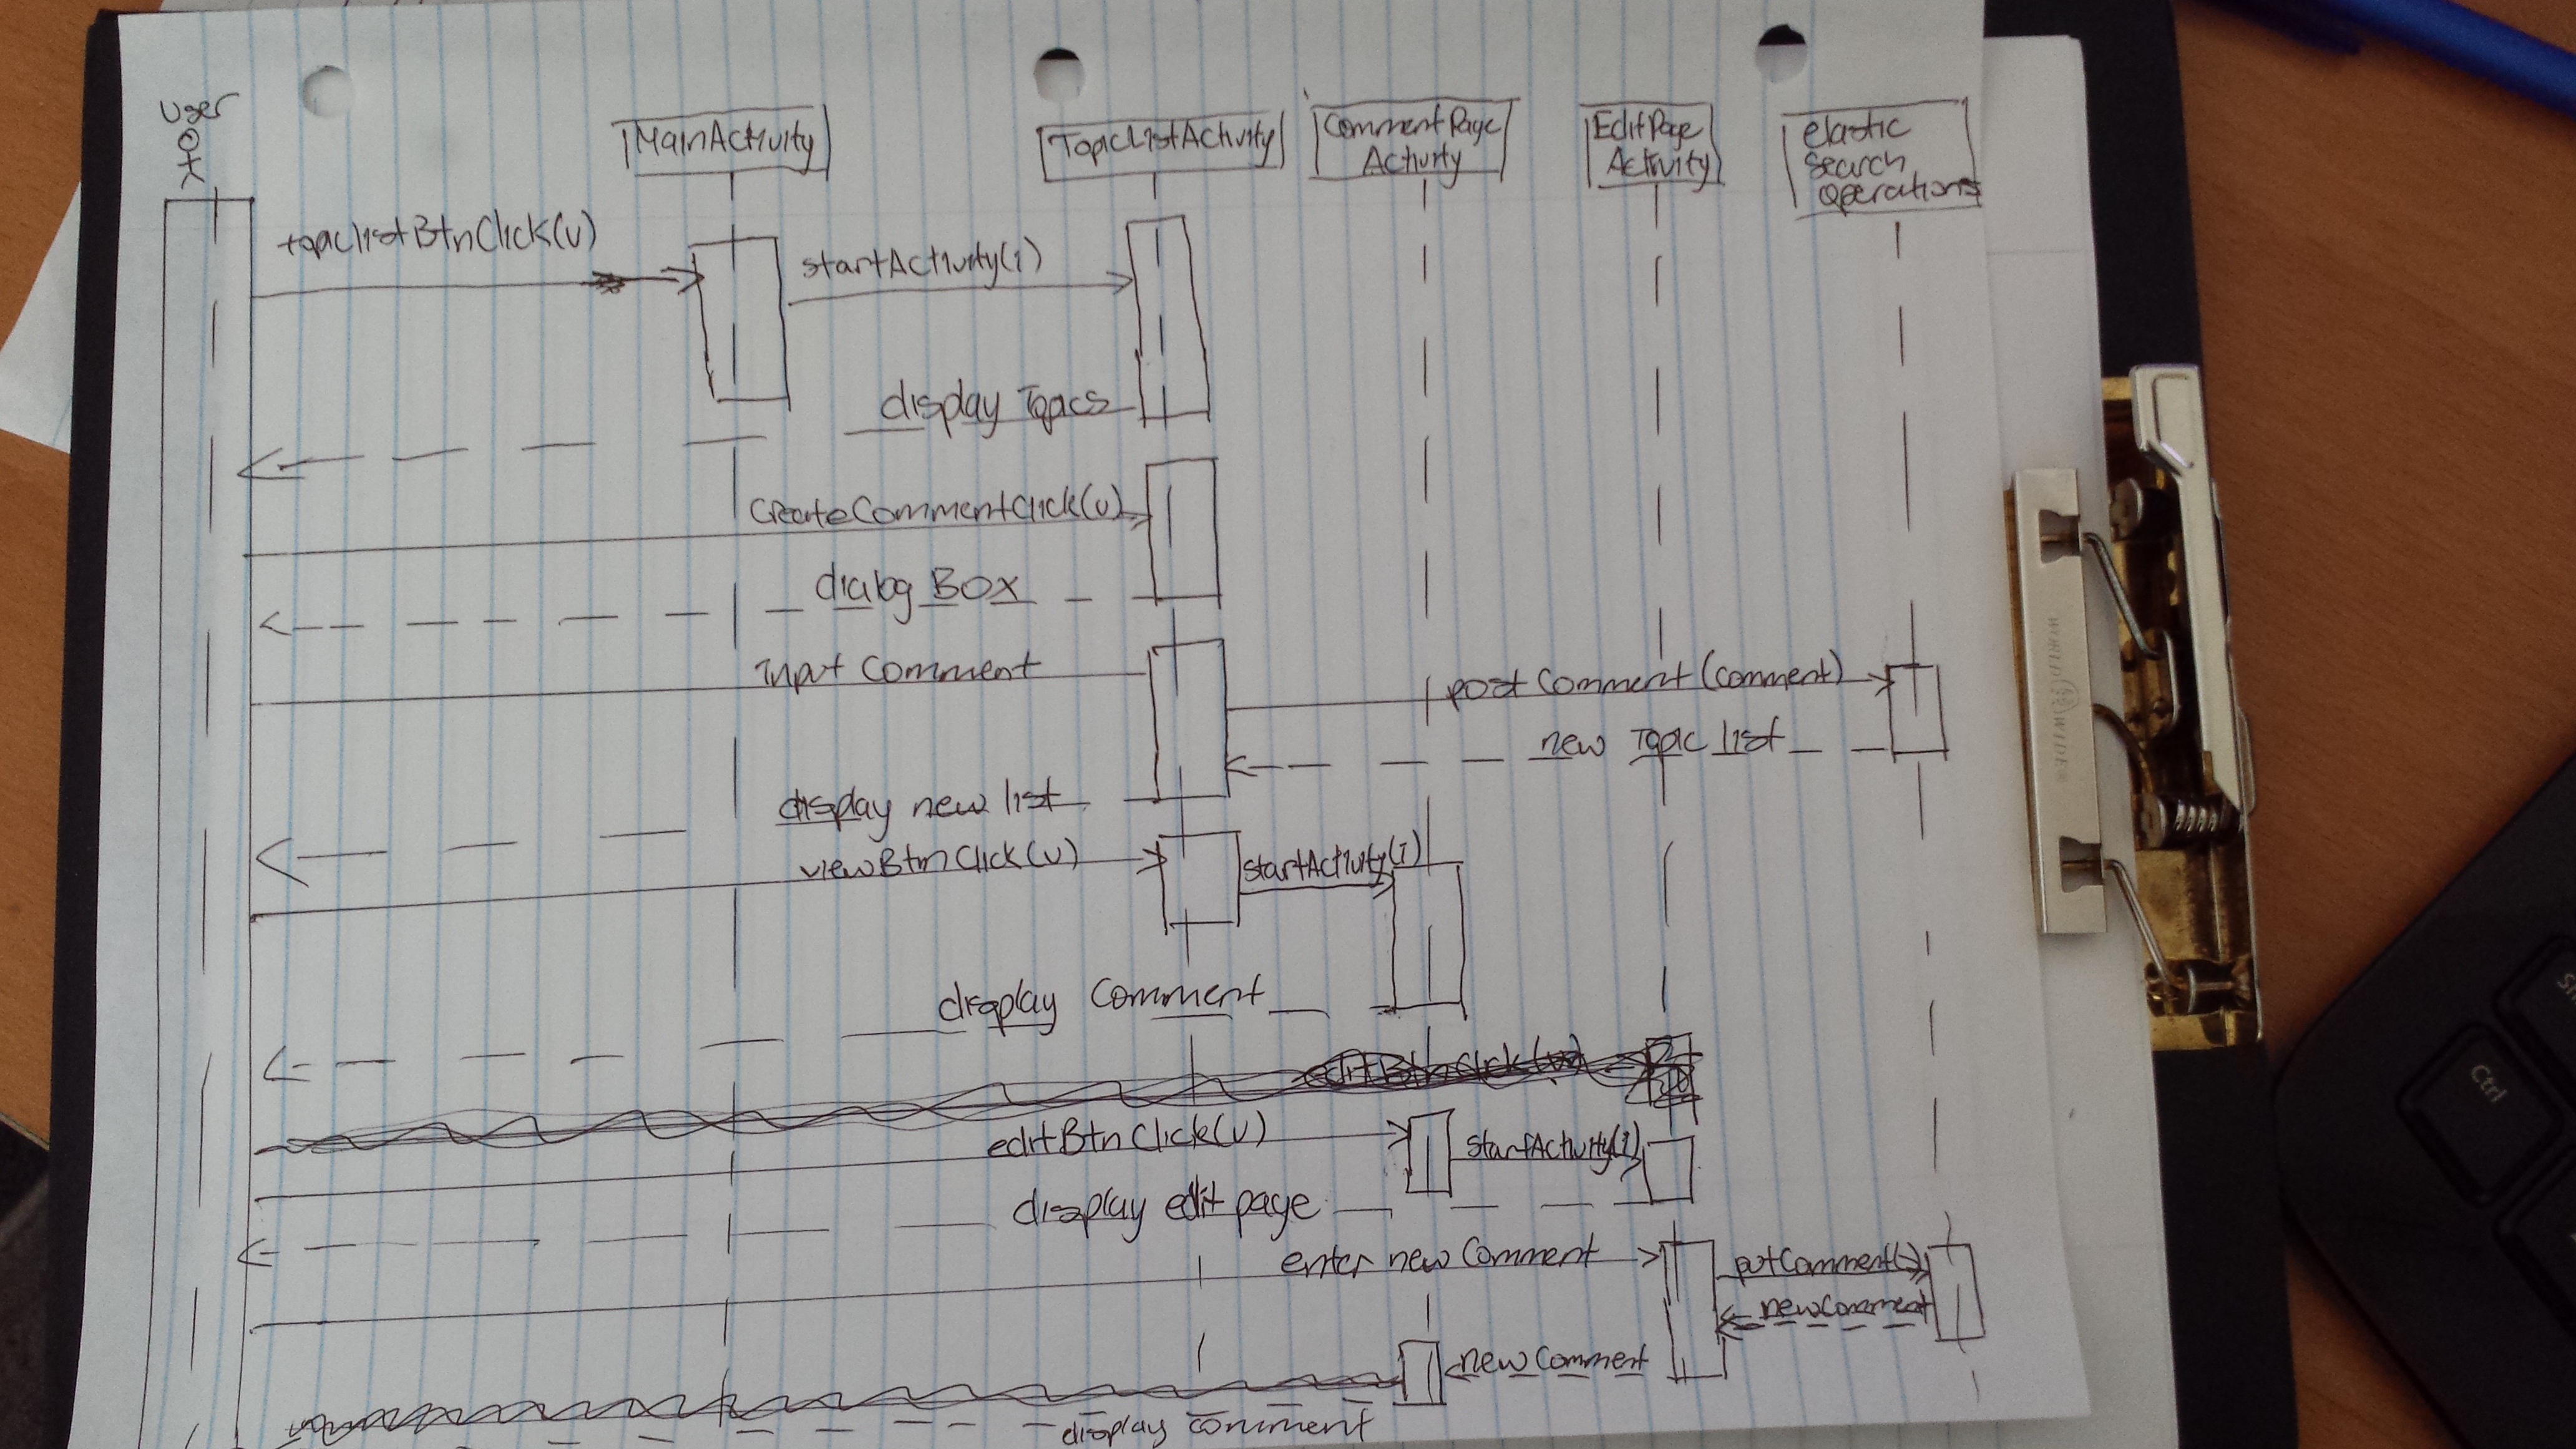 user
MainActivity
TopicListActivity
CommentPage
Activity
EditPage
Activity
elastic
search
operations
topiclistBtnClick(v)
startActivity(i)
display Topics
CreateCommentClick(v)
dialog Box
Input Comment
post Comment (comment)
new Topic list
display new list
viewBtnClick(v)
startActivity(i)
display Comment
editBtnClick(v)
startActivity(i)
display edit page
enter new Comment
putComment(-)
newComment
new Comment
display comment
WORLD WIDE
Ctrl